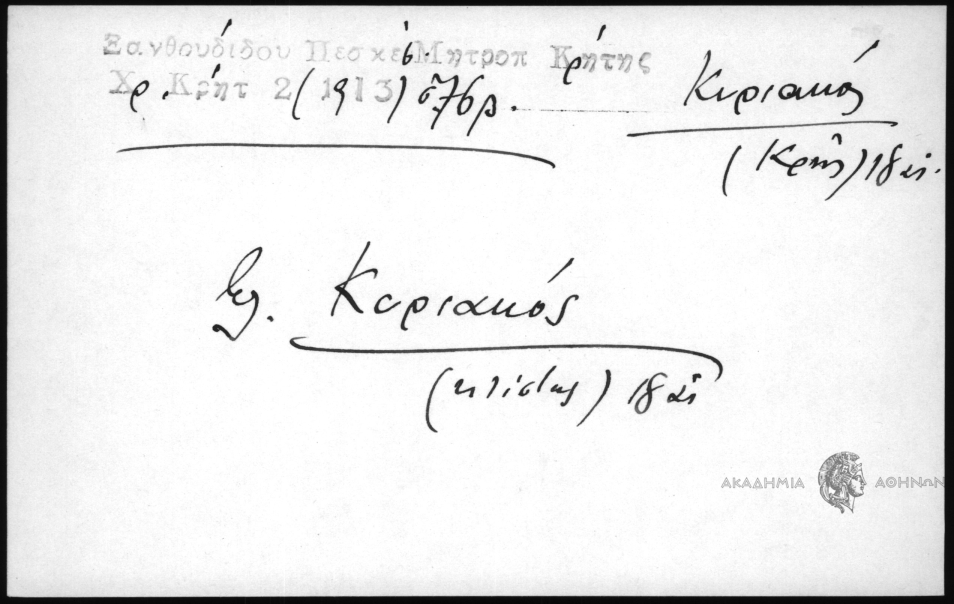 Ξανθουδίδου Πεσκέσ. Μητροπ Κρήτης
Χρ. Κρήτ 2 (1913) σ. 76 β.
Κυριακός
(Κρής) 18 αι.
βλ. Κυριακός
(κτίστης) 18 αι
ΑΚΑΔΗΜΙΑ ΑΘΗΝΩΝ